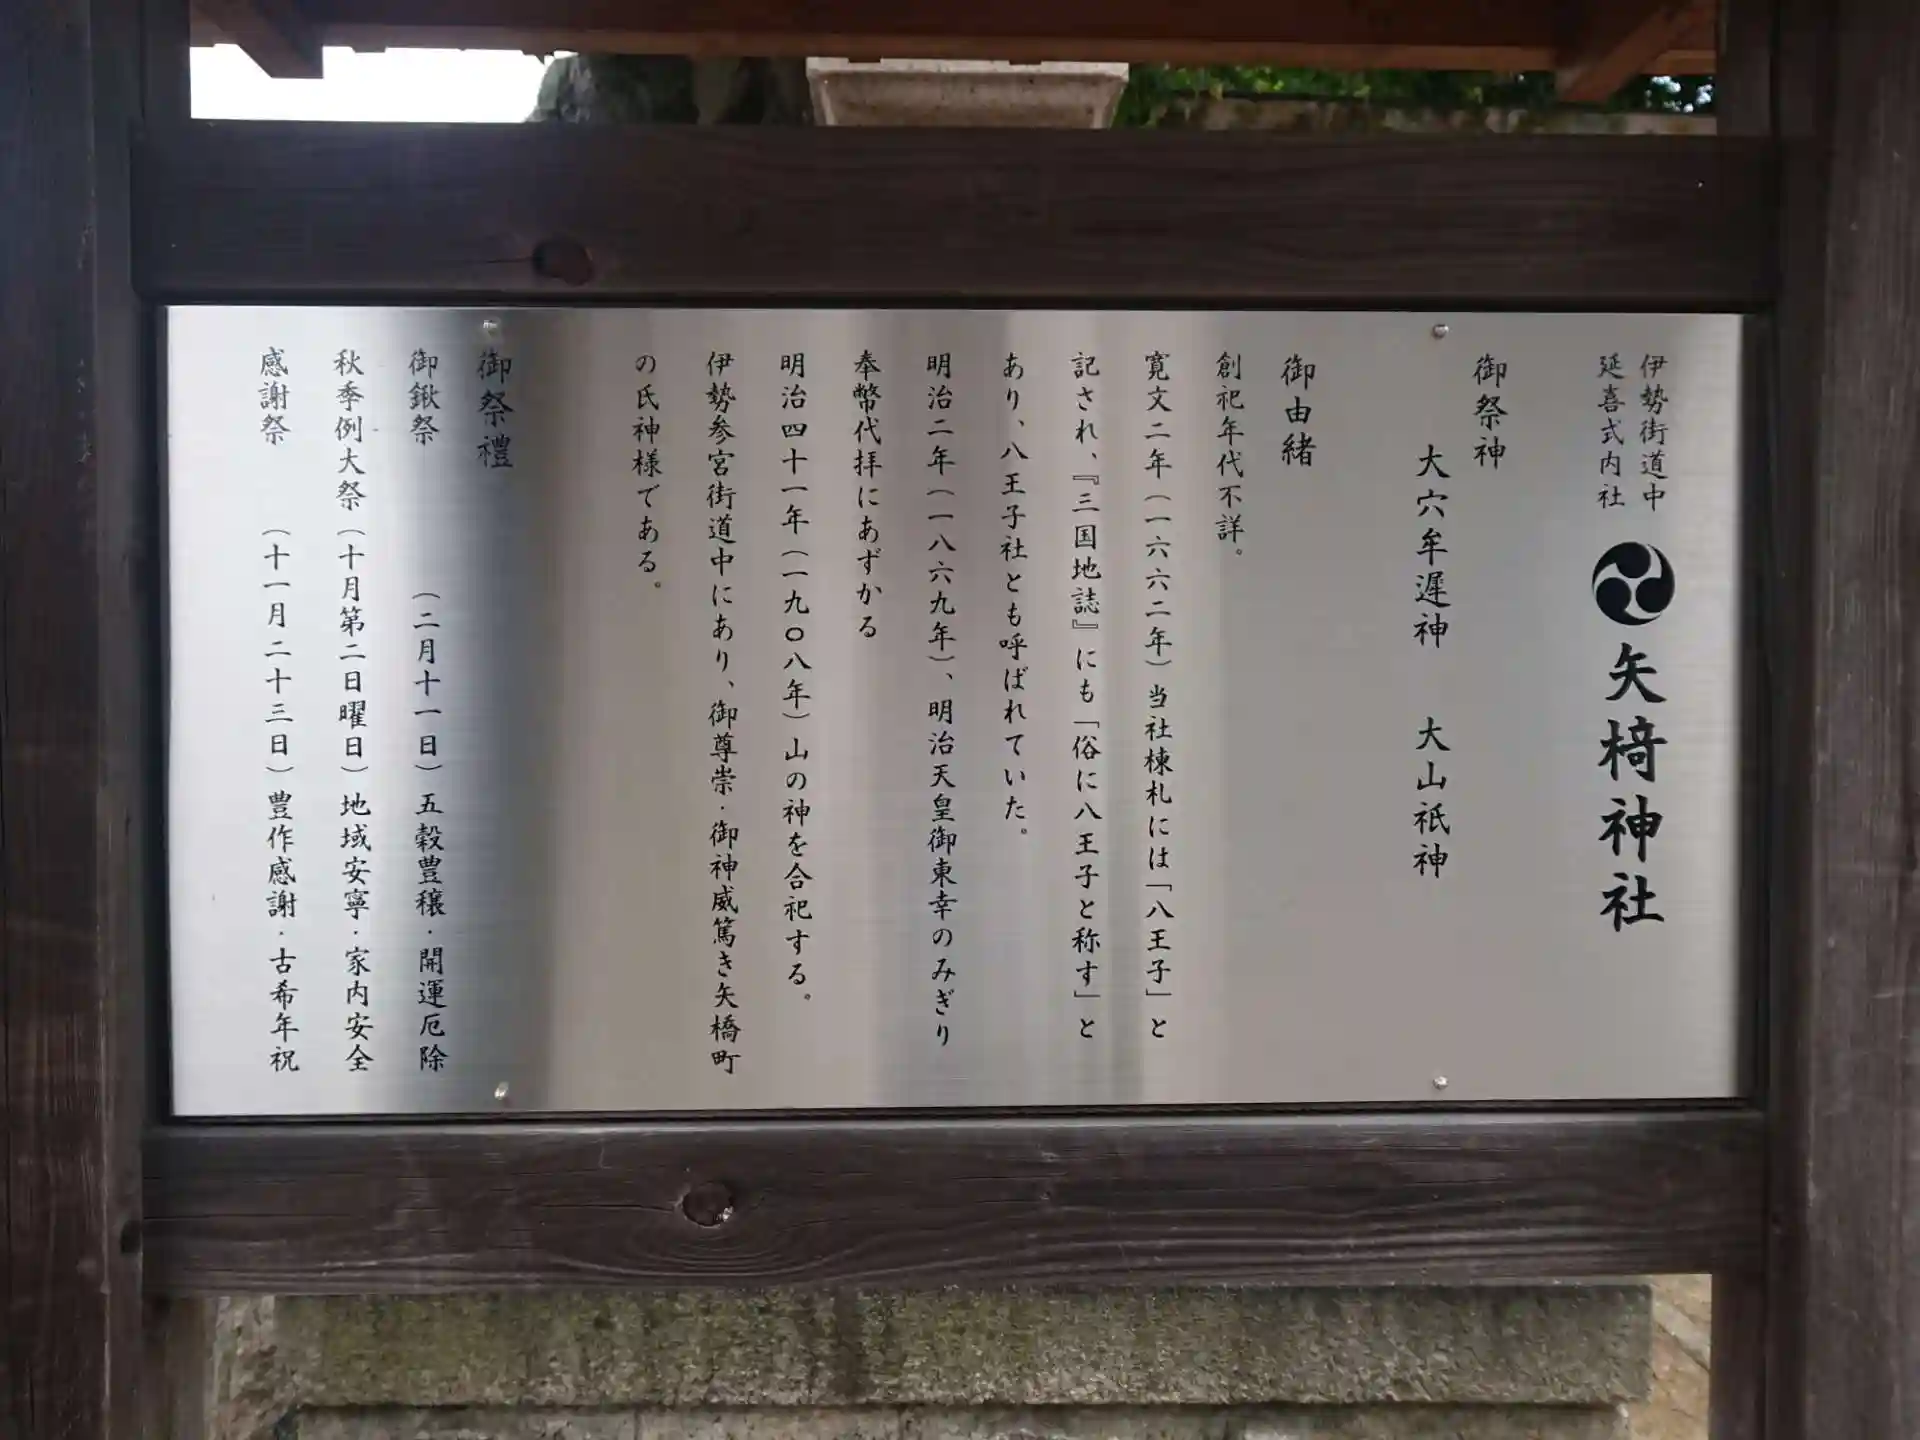 伊勢街道中
延喜式内社
矢椅神社
御祭神
大穴牟遅神 大山祇神
御由緒
創祀年代不詳。
寛文二年(一六六二年)当社棟札には「八王子」と
記され、『三国地誌』にも「俗に八王子と称す」と
あり、八王子社とも呼ばれていた。
明治二年(一八六九年)、明治天皇御東幸のみぎり
奉幣代拝にあずかる
明治四十一年(一九〇八年)山の神を合祀する。
伊勢参宮街道中にあり、御尊崇・御神威篤き矢橋町
の氏神様である。
御祭禮
御鍬祭 (二月十一日)五穀豊穣・開運厄除
秋季例大祭(十月第二日曜日)地域安寧・家内安全
感謝祭 (十一月二十三日)豊作感謝・古希年祝